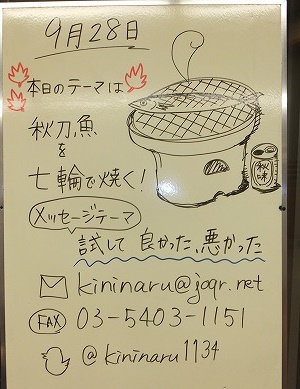 9月28日
本日のテーマは
秋刀魚
を
七輪で焼く!
秋味
メッセージテーマ
試して 良かった、悪かった
kininaru@joqr.net
FAX 03-5403-1151
@kininaru1134